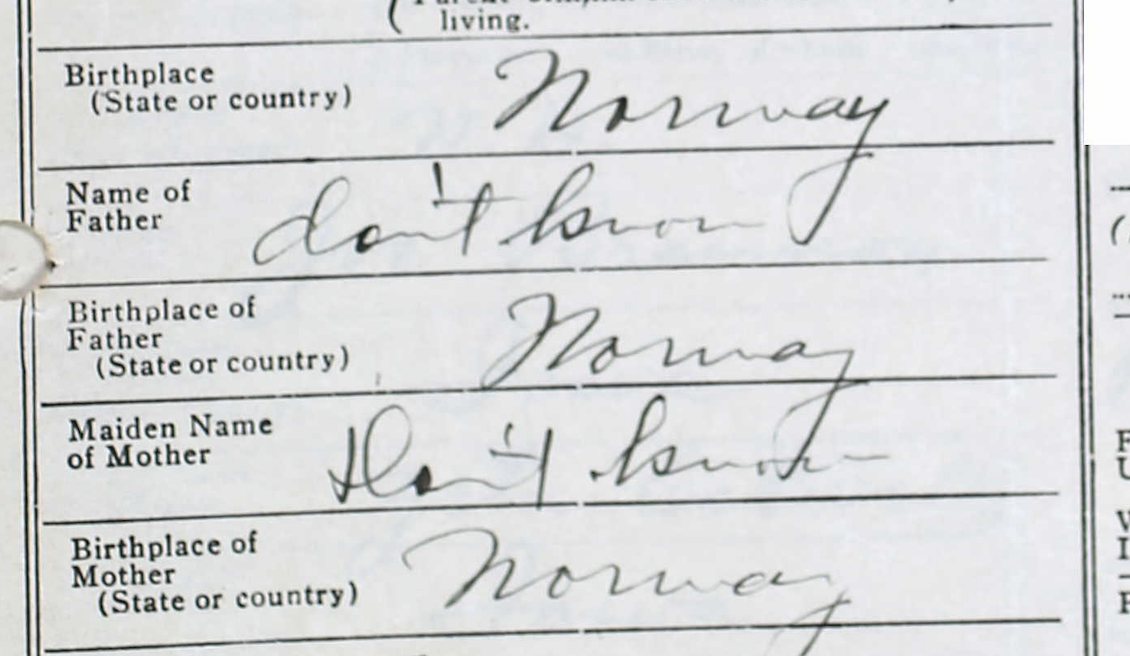 living.
Birthplace
(State or country)
Norway
Name of
Father
don't know
Birthplace of
Father
(State or country)
Norway
Maiden Name
of Mother
Don't know
Birthplace of
Mother
(State or country)
Norway